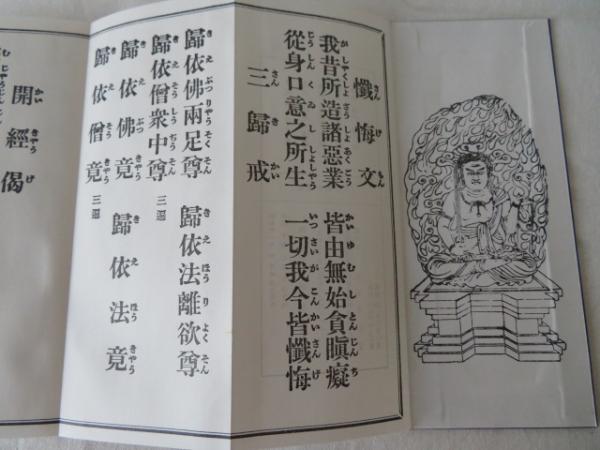 懺悔文
我昔所造諸惡業 皆由無始貪瞋癡
從身口意之所生 一切我今皆懺悔
三歸戒
歸依佛兩足尊 歸依法離欲尊
歸依僧衆中尊 三遍
歸依佛竟 歸依法竟
歸依僧竟 三遍
開經偈